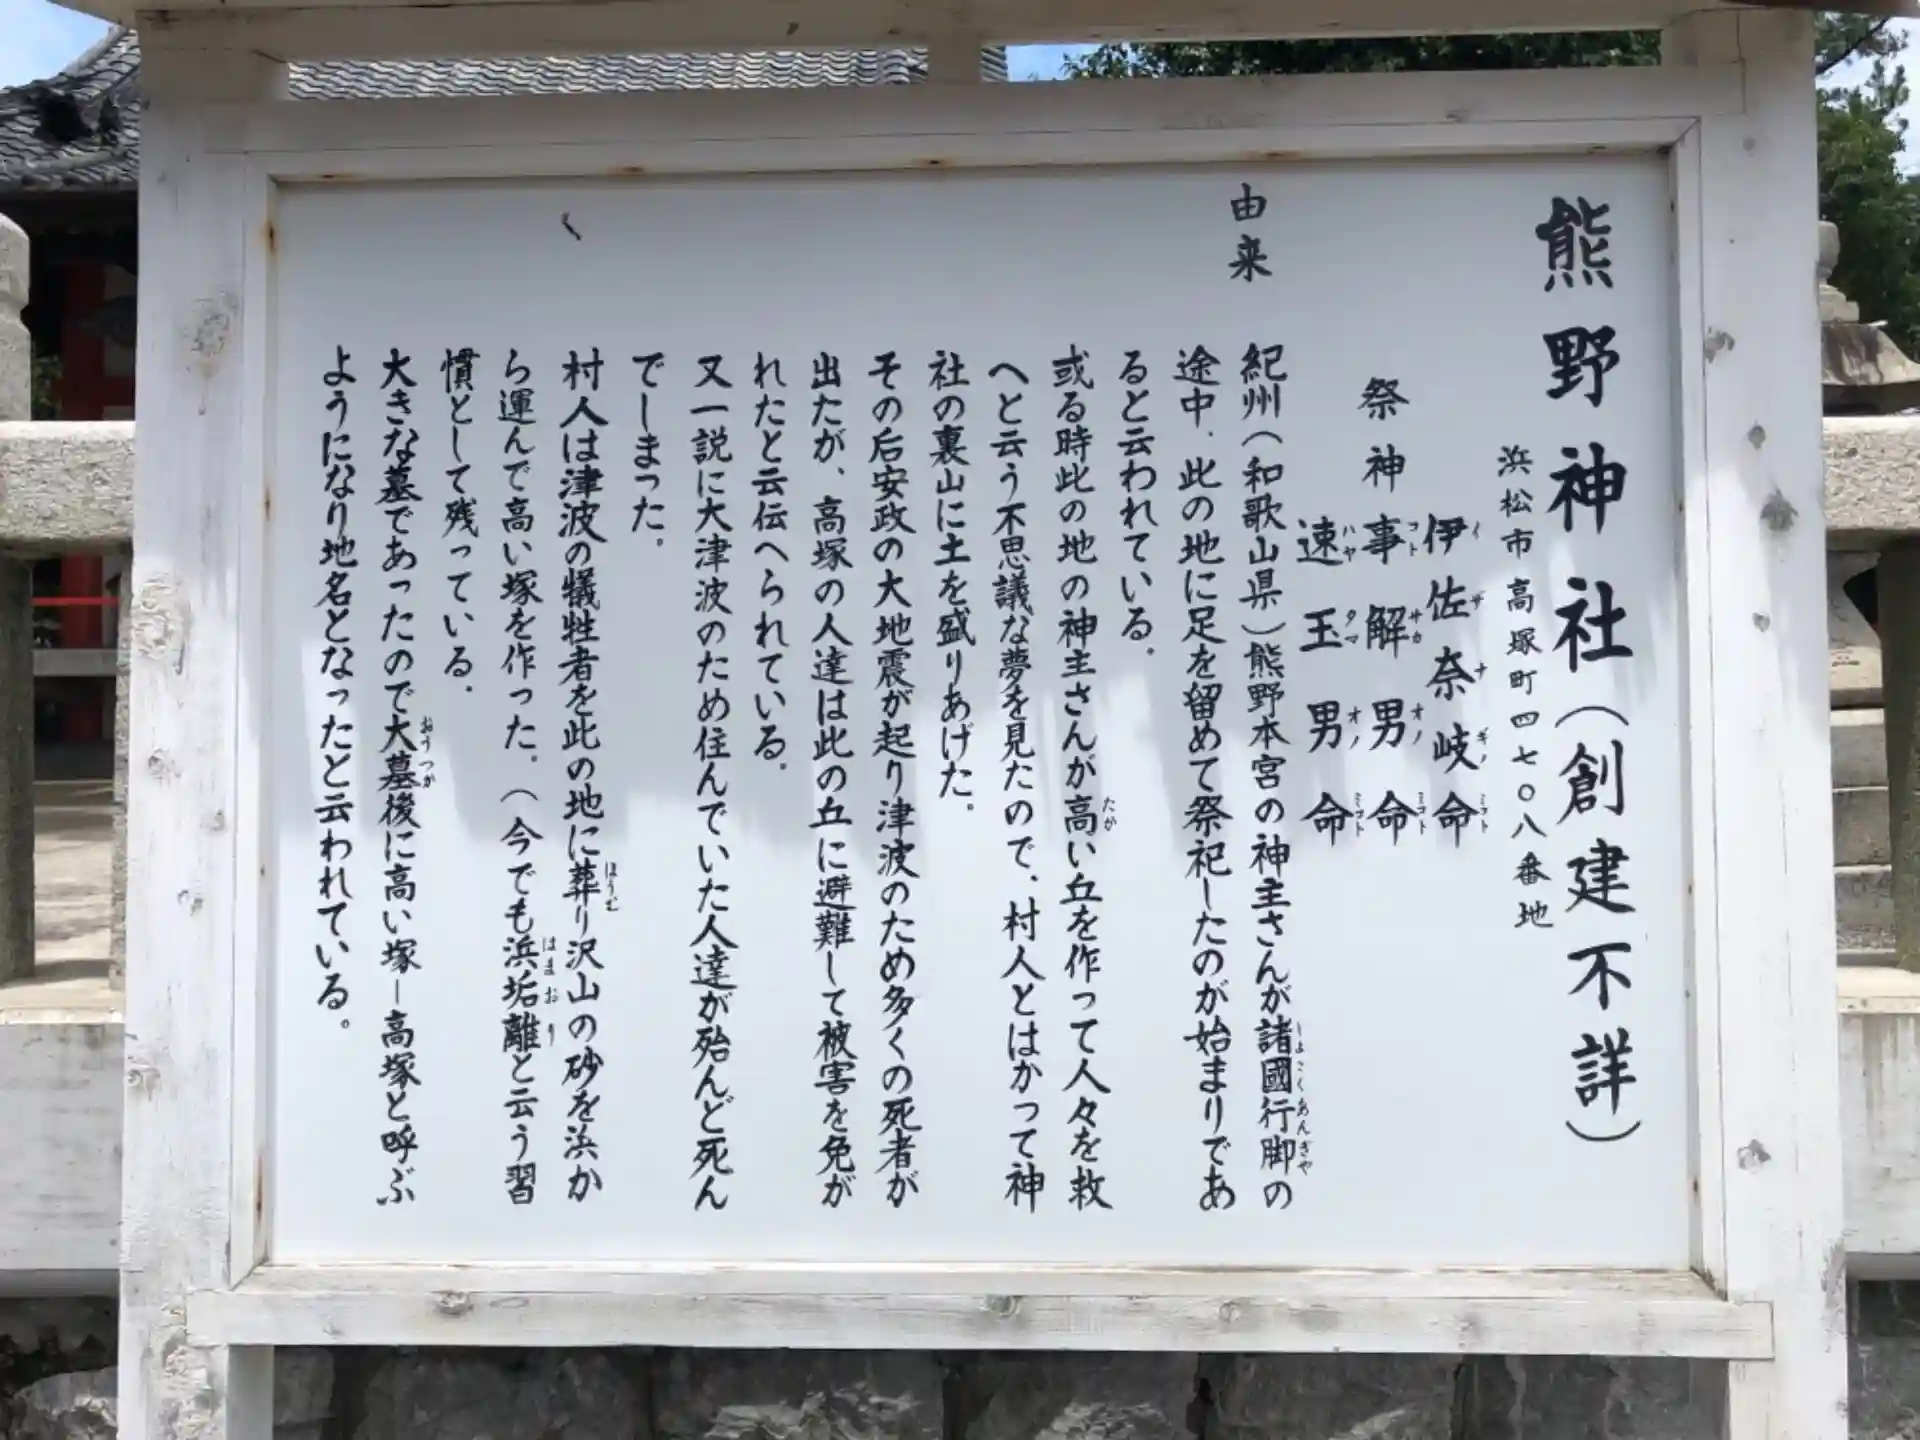 熊野神社(創建不詳)
浜松市高塚町四七〇八番地
伊佐奈岐命
イザナギノミコト
祭神 事解男命
コトサカオノミコト
速玉男命
ハヤタマオノミコト
由来
紀州(和歌山県)熊野本宮の神主さんが諸國行脚の
しょこくあんぎゃ
途中、此の地に足を留めて祭祀したのが始まりであ
ると云われている。
或る時此の地の神主さんが高い丘を作って人々を救
たか
へと云う不思議な夢を見たので、村人とはかって神
社の裏山に土を盛りあげた。
その后安政の大地震が起り津波のため多くの死者が
出たが、高塚の人達は此の丘に避難して被害を免が
れたと云伝へられている。
又一説に大津波のため住んでいた人達が殆んど死ん
でしまった。
村人は津波の犠牲者を此の地に葬り沢山の砂を浜か
ほうむ
ら運んで高い塚を作った。(今でも浜垢離と云う習
はまおり
慣として残っている。
大きな墓であったので大墓後に高い塚ー高塚と呼ぶ
おうつか
ようになり地名となったと云われている。